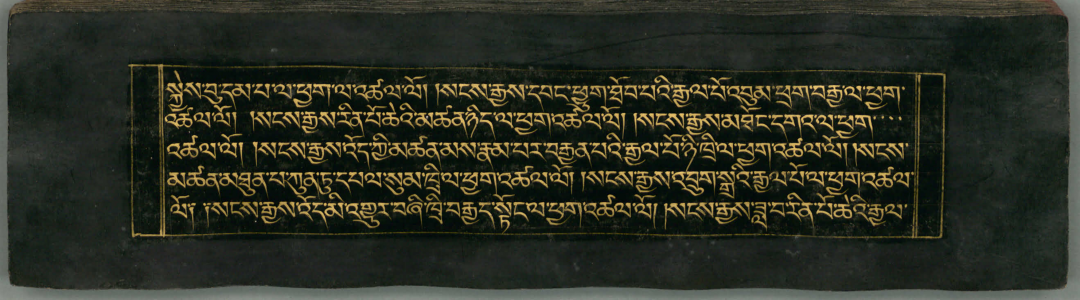 སྐྱེས་བུ་དམ་པ་ལ་ཕྱག་འཚལ་ལོ། །སངས་རྒྱས་དབང་ཕྱུག་ཐོབ་པའི་རྒྱལ་པོ་འབུམ་ཕྲག་བརྒྱ་ལ་ཕྱག་
འཚལ་ལོ། །སངས་རྒྱས་རིན་པོ་ཆེའི་མཚན་ཉིད་ལ་ཕྱག་འཚལ་ལོ། །སངས་རྒྱས་མཐིང་དགའ་ལ་ཕྱག་
འཚལ་ལོ། །སངས་རྒྱས་འོད་ཀྱི་མཚན་མས་རྣམ་པར་བརྒྱན་པའི་རྒྱལ་པོ་ཉི་ཁྲི་ལ་ཕྱག་འཚལ་ལོ། །སངས་
མཚན་མཐུན་པ་ཀུན་ཏུ་དཔལ་སུམ་ཁྲི་ལ་ཕྱག་འཚལ་ལོ། །སངས་རྒྱས་འབྲུག་སྒྲའི་རྒྱལ་པོ་ལ་ཕྱག་འཚལ་
ལོ། །སངས་རྒྱས་འོད་མི་འགྱུར་བཞི་ཁྲི་བརྒྱད་སྟོང་ལ་ཕྱག་འཚལ་ལོ། །སངས་རྒྱས་ཟླ་བ་རིན་པོ་ཆེའི་རྒྱལ་